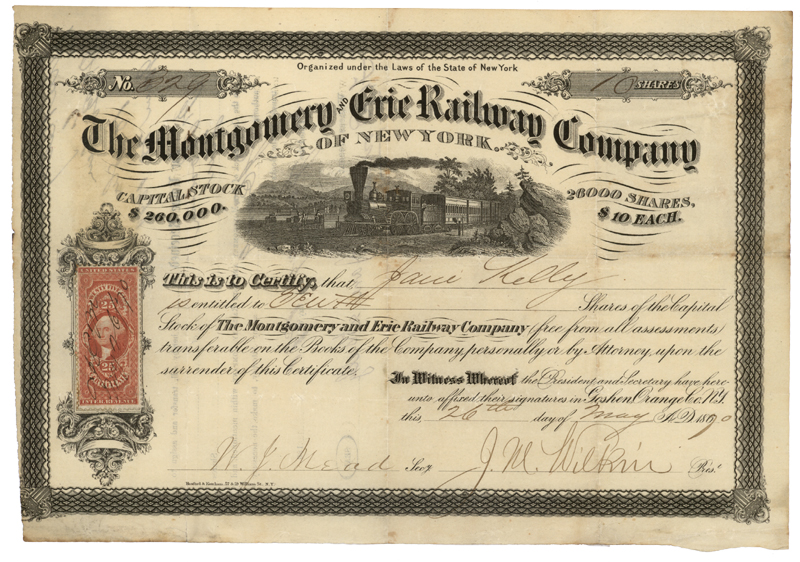 Organized under the Laws of the State of New York
No. 329
10 SHARES
The Montgomery AND Erie Railway Company
OF NEW YORK.
CAPITAL STOCK
$260,000.
26000 SHARES,
$10 EACH.
This is to Certify, that Jane Kelly
is entitled to Shares of the Capital
Stock of The Montgomery and Erie Railway Company (free from all assessments)
transferable on the Books of the Company, personally or by Attorney, upon the
surrender of this Certificate.
In Witness Whereof the President and Secretary have here
unto affixed their signatures in Goshen Orange Co. N.Y.
this, 26th day of May A.D. 1890
W. J. Mead Secy. J. M. Wilkin Pres.t
UNITED STATES
25 25
INTER. REVENUE